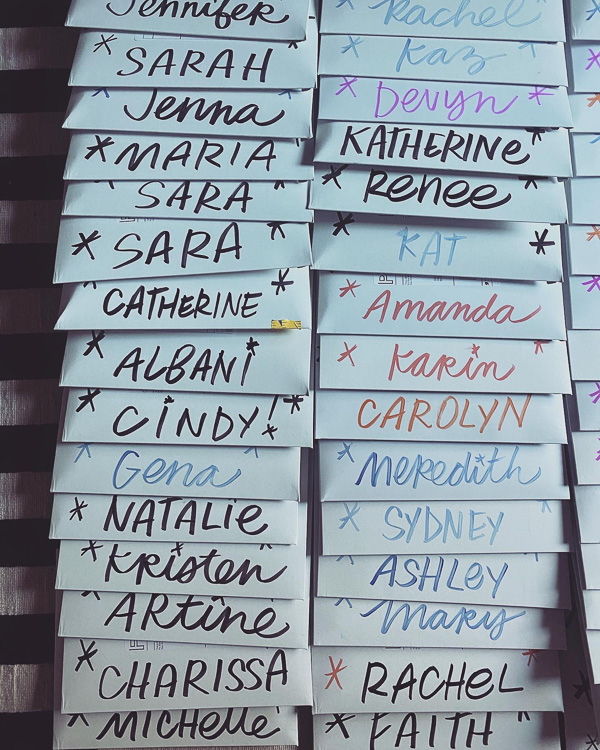 Jennifer
SARAH
Jenna
MARIA
SARA
SARA
CATHERINE
ALBANi
CiNDY!
Gena
NATALie
Kristen
ARtine
CHARISSA
MICHelle
Rachel
Kaz
Devyn
KATHERiNe
Renee
KAT
Amanda
Karin
CAROLYN
MeRedith
SYDNEY
ASHLeY
Mary
RACHeL
FAITH